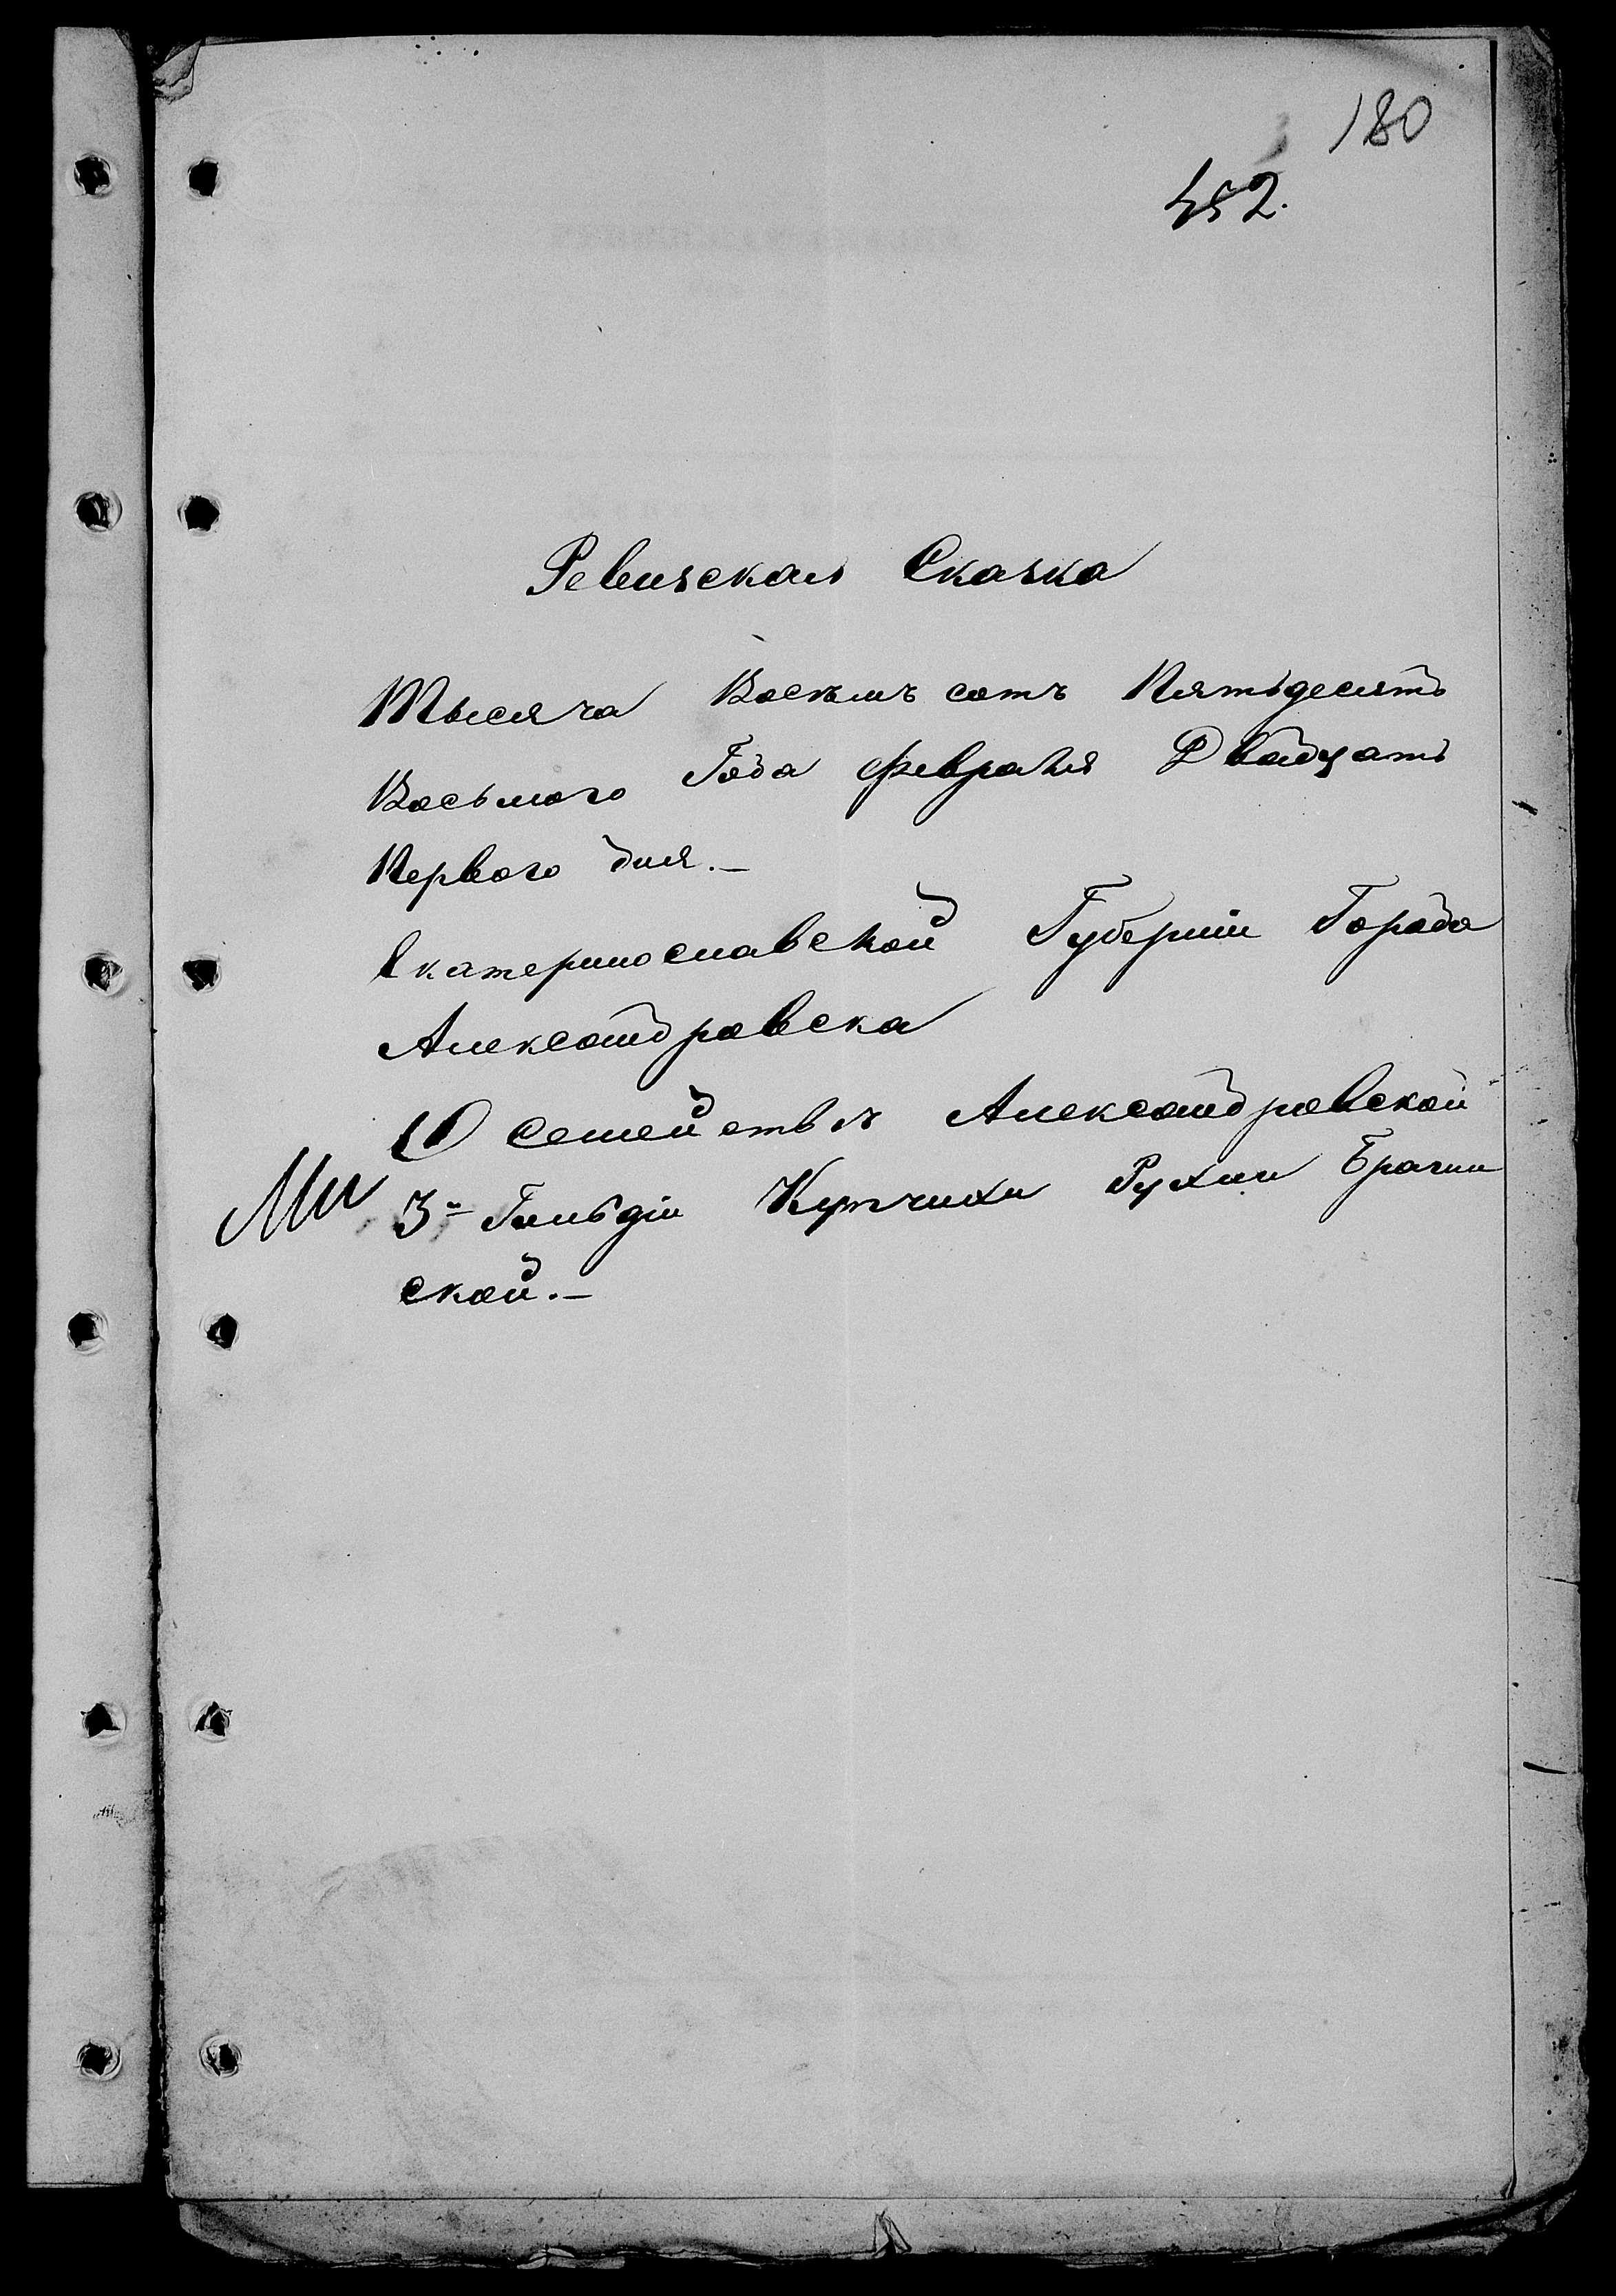 180
452.
Ревизская Сказка
Тысяча Восемь сотъ Пятьдесятъ
Восьмого Года февраля Двадцать
Первого дня.—
Екатеринославской Губерніи Города
Александровска
О семействѣ Александровской
3й Гильдіи Купчихи Рухли Брагин
ской.—